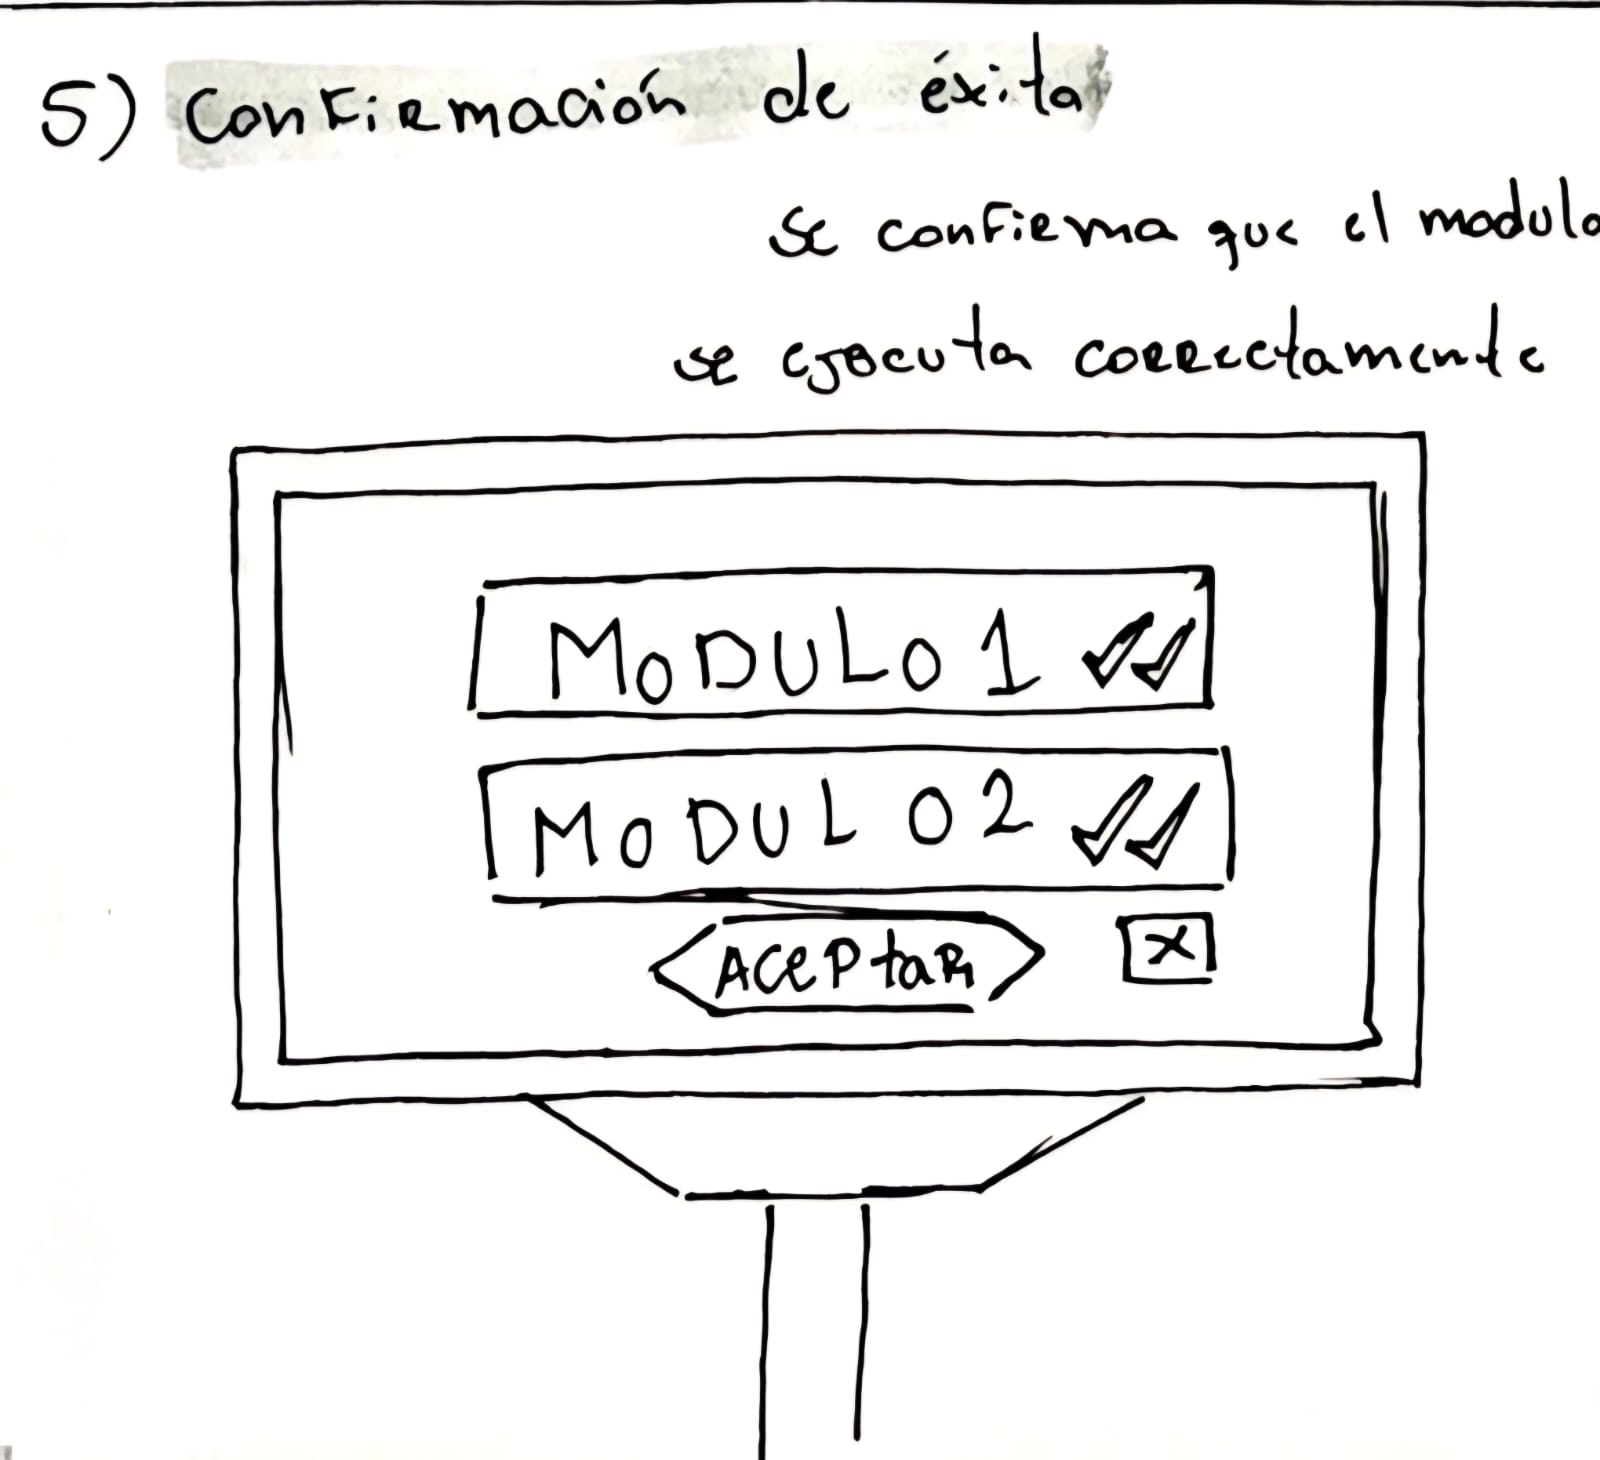 5) Confirmación de éxito
se confirma que el modulo
se ejecuta correctamente
MODULO 1 ✓✓
MODULO 2 ✓✓
ACePtaR
X